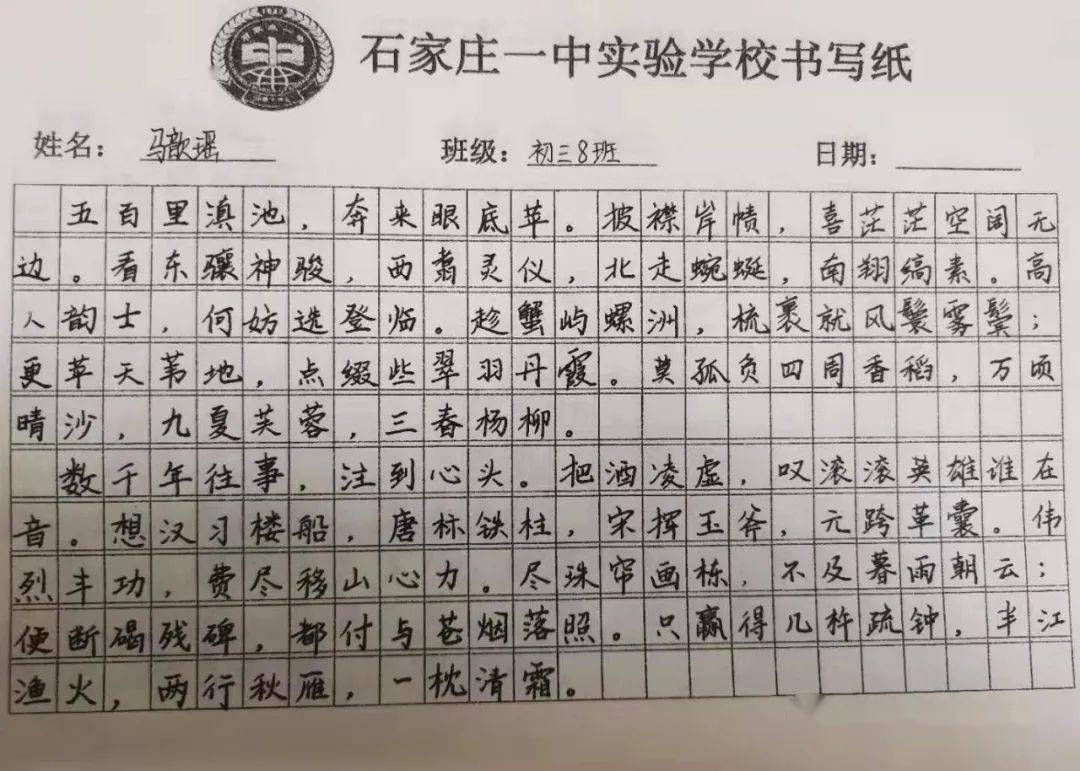 石家庄一中实验学校书写纸
姓名：马歆瑶 班级：初三8班 日期：
五百里滇池，奔来眼底苹。披襟岸帻，喜茫茫空阔无
边。看东骧神骏，西翥灵仪，北走蜿蜒，南翔缟素。高
人韵士，何妨选登临。趁蟹屿螺洲，梳裹就风鬟雾鬓；
更苹天苇地，点缀些翠羽丹霞。莫孤负四周香稻，万顷
晴沙，九夏芙蓉，三春杨柳。
数千年往事，注到心头。把酒凌虚，叹滚滚英雄谁在
音。想汉习楼船，唐标铁柱，宋挥玉斧，元跨革囊。伟
烈丰功，费尽移山心力。尽珠帘画栋，不及暮雨朝云；
便断碣残碑，都付与苍烟落照。只赢得几杵疏钟，半江
渔火，两行秋雁，一枕清霜。